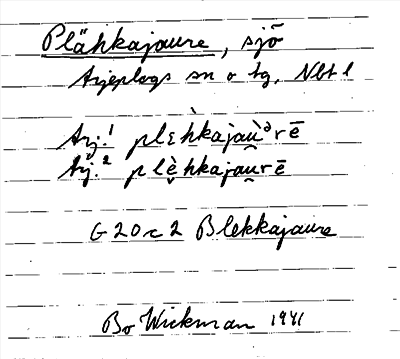 Plähkajaure, sjö
Arjeplogs sn o tg, Nbt l
Arj.¹ plɛ̀hkajau̯ᵊrē
Arj.² plɛ̬̀hkajau̯rē
G 20 c 2 Blekkajaure
Bo Wickman 1941